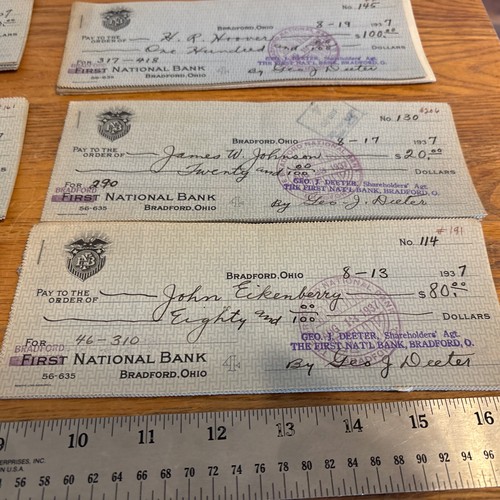 No. 145
BRADFORD, OHIO 8-19 1937
PAY TO THE
ORDER OF H. R. Hoover $100.00
One Hundred and 00/100 DOLLARS
FOR 317-418
GEO. J. DEETER, Shareholders' Agt.
THE FIRST NAT'L BANK, BRADFORD, O.
BRADFORD
FIRST NATIONAL BANK
BRADFORD, OHIO By Geo J. Deeter
56-635
No. 130
BRADFORD, OHIO 8-17 1937
PAY TO THE
ORDER OF James W. Johnson $20.00
Twenty and 00/100 DOLLARS
FOR 290
GEO. J. DEETER, Shareholders' Agt.
THE FIRST NAT'L BANK, BRADFORD, O.
BRADFORD
FIRST NATIONAL BANK
56-635 BRADFORD, OHIO By Geo. J. Deeter
#191
FNB
No. 114
BRADFORD, OHIO 8-13 1937
PAY TO THE
ORDER OF John Eikenberry $80.00
Eighty and 00/100 DOLLARS
FOR 46-310
GEO. J. DEETER, Shareholders' Agt.
THE FIRST NAT'L BANK, BRADFORD, O.
BRADFORD
FIRST NATIONAL BANK
56-635 BRADFORD, OHIO 4 By Geo J Deeter
9 10 11 12 13 14 15 16
ERPRISES, INC.
IN U.S.A.
56 58 60 62 64 66 68 70 72 74 76 78 80 82 84 86 88 90 92 94 96